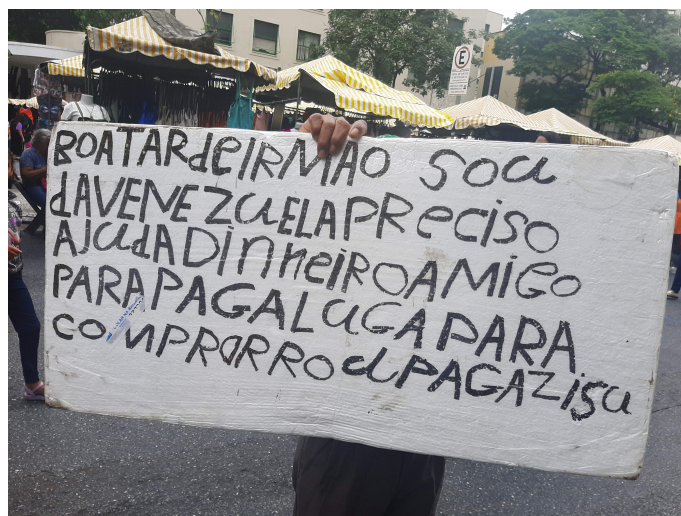 BOATARdeIRMAO sou
dAVENEZuELAPReciso
AJudADinheiROAMiGO
PARAPAGALuGAPARA
COMPRARROuPAGAZisu
E